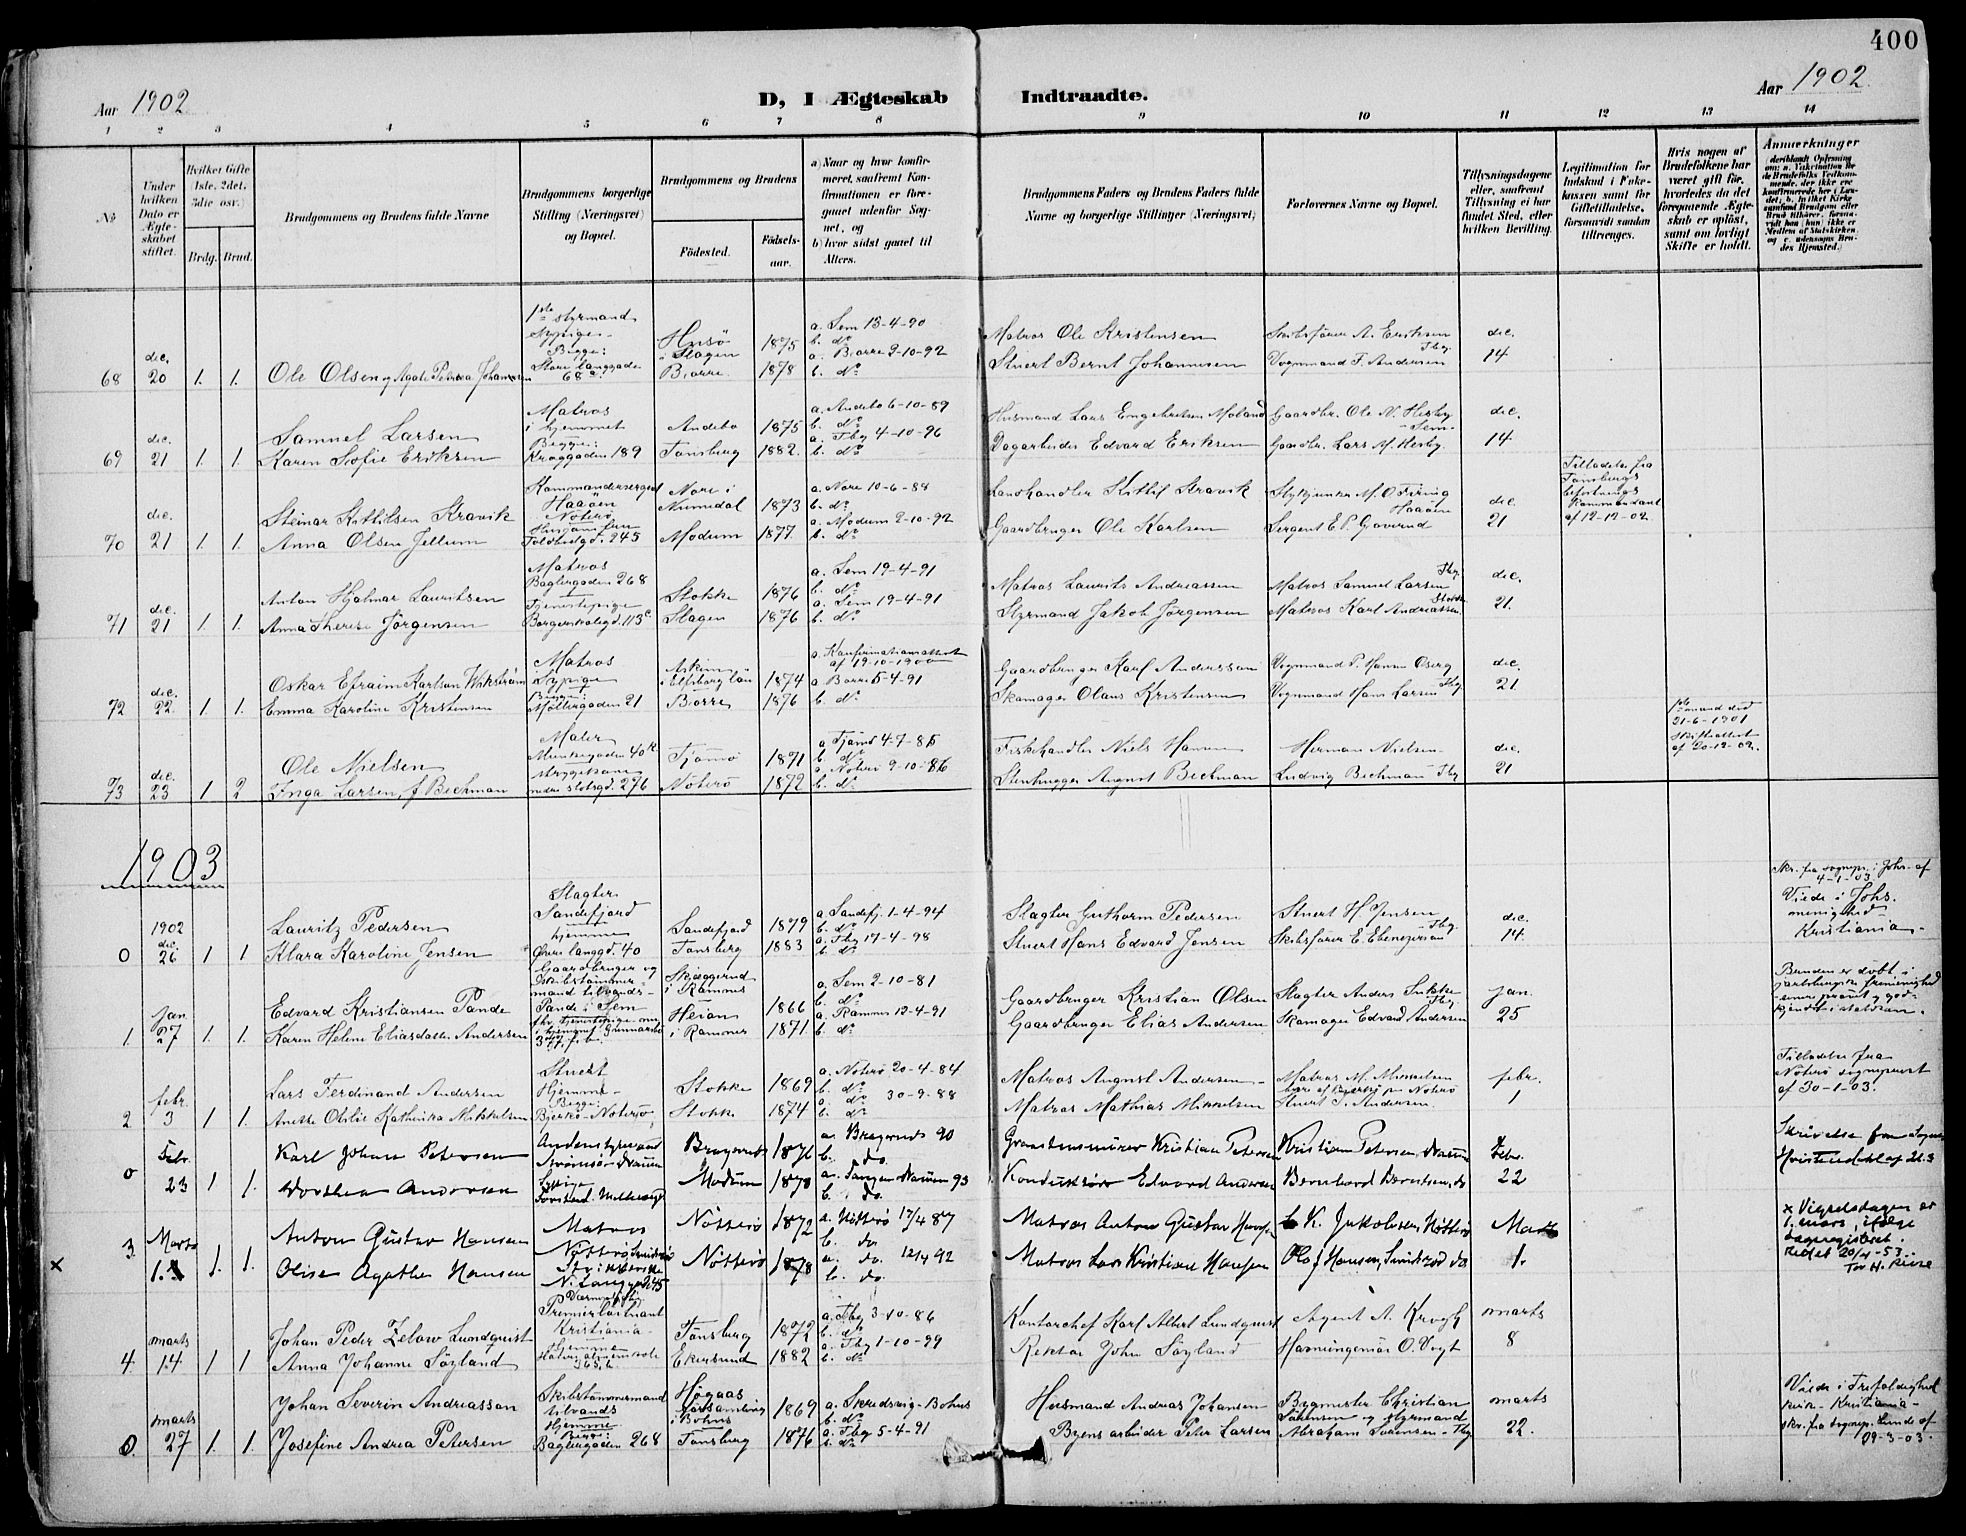 400
Aar 1902
D, I Ægteskab Indtraadte.
Aar 1902
1 2 3 4 5 6 7 8 9 10 11 12 13 14
No
Under hvilken Dato er Ægteskabet stiftet.
Hvilket Gifte 1ste, 2det, 3die osv.)
Brdg. Brud.
Brudgommens og Brudens fulde Navne
Brudgommens borgerlige Stilling (Næringsvei) og Bopæl.
Brudgommens og Brudens
Fødested.
Fødselsaar.
a) Naar og hvor konfirmeret, saafremt Konfirmationen er foregaaet udenfor Sognet, og
b) hvor sidst gaaet til Alters.
Brudgommens Faders og Brudens Faders fulde Navne og borgerlige Stillinger (Næringsvei)
Forlovernes Navne og Bopæl.
Tillysningsdagene eller, saafremt Tillysning ei har fundet Sted, efter hvilken Bevilling.
Legitimation for Indskud i Enkekassen samt for Giftetilladelse, forsaavidt saadan tiltrænges.
Hvis nogen af Brudefolkene har været gift før, hvorledes da det foregaaende Ægteskab er opløst, samt om lovligt Skifte er holdt.
Anmærkninger
1ste styrmand
Sypige
Begge:
Store langgaden 68 a.
68 dec. 20 1. 1. Ole Olsen og Agate Petrea Johannesen
Husö i Slagen 1875 a. Sem 13-4-90 b. do
Borre 1878 a. Borre 2-10-92 b. do
Matros Ole Kristensen
Stuert Bernt Johannesen
Skibsfører A. Eriksen
Vognmand F. Andersen Tbg.
dec. 14
69 dec. 21 1. 1. Samuel Larsen
Karen Sofie Eriksen
Matros
i hjemmet
Begge:
Kroggaden 189
Andebo 1875 a. Andebo 6-10-89 b. do
Tønsberg 1882. a. Tbg 4-10-96 b. do
Husmand Lars Engebretsen Moland
Dagarbeider Edvard Eriksen
Gaardbr. Ole N. Hesby
Sem
Gaardbr. Lars M. Hesby
dec. 14
70 dec. 21 1. 1. Steinar Kittilsen Kravik
Anna Olsen Jellum
Kommandersergent
Haaöen
Nöterö
Toldbodgd. 245
Nore i Numedal 1873 a. Nore 10-6-88 b. do
Modum 1877. a. Modum 2-10-92 b. do
Landhandler Kittil Kravik
Gaardbruger Ole Karlsen
Stykjunker M. O. Firing
Haaöen
Sergent E. P. Goverud
dec. 21
Tilladelse fra Tønsbergs befæstnings Kommandant af 12-12-02.
71 dec. 21 1. 1. Anton Hjalmar Lauritsen
Anna Therese Jörgensen
Matros
Baglergaden 268
Tjenestepige
Borgerskolegd. 113 c.
Stokke 1876 a. Sem 19-4-91 b. do
Slagen 1876 a. Sem 19-4-91 b. do
Matros Laurits Andreassen
Styrmand Jakob Jörgensen
Matros Samuel Larsen Tbg
Matros Karl Andreassen Stokke
dec. 21.
72 dec. 22. 1. 1. Oskar Efraim Karlson Wikström
Emma Karoline Kristensen
Matros
Sypige
Begge:
Möllergaden 21
Askim i Elfsborg län 1874 a. Konfirmationsattest af 19-10-1900
Borre 1876 a. Borre 5-4-91 b. do
Gaardbruger Karl Andersson
Skomager Olaus Kristensen
Vognmand P. Hansen Oserg
Vognmand Hans Larsen Tbg.
dec. 21.
73 dec. 23 1 2 Ole Nielsen
Inga Larsen, f. Bechman
Maler
Munkegaden 40 k.
nedre slotsgd. 276
Tjömö 1871 a. Tjömö 4-7-86 b. do
Nöterö 1872 a. Nöterö 2-10-86 b. do
Fiskehandler Niels Hansen
Stenhugger August Bechman
Herman Nielsen
Ludvig Bechman Tbg
dec. 21
1ste mand död 21-6-1901 skifteattest af 20-12-02.
1903
0 1902 dec. 26 1 1 Lauritz Pedersen
Klara Karoline Jensen
Slagter
Sandefjord
hjemme
Övre langgd. 40
Sandefjord 1879 a. Sandefj. 1-4-94 b. do
Tønsberg 1883 a. Tbg 17-4-98 b. do
Slagter Guthorm Pedersen
Stuert Hans Edvard Jensen
Stuert H. Jensen
Skibsfører E. Ebenezersen Tbg.
dec. 14.
Skr. fra sognepr. i Johs. af 4-1-03.
Viede i Johs. menighed Kristiania.
1. jan 27 1. 1. Edvard Kristiansen Pande
Karen Helene Eliasdatter Andersen
Gaardbruger og
Skibstømmermand tilvands
Pande i Sem
Skjæggerud i Ramnes 1866 a. Sem 2-10-81 b. do
Heian i Ramnes 1871 a. Ramnes 12-4-91 b. do
Gaardbruger Kristian Olsen
Gaardbruger Elias Andersen
Slagter Anders Sukke Tbg.
Skomager Edvard Andersen
jan. 25
Bruden er døbt i
2 febr. 3 1 1. Lars Ferdinand Andersen
Anette Otilie Kathinka Mikkelsen
Stuert
Hjemme
Begge:
Bjerkö - Nöterö
Stokke 1869 a. Nöterö 20-4-84 b. do
Stokke 1874 a. do 30-9-88 b. do
Matros August Andersen
Matros Mathias Mikkelsen
Matros M. Mikkelsen
Stuert T. Andersen
febr. 1
Tilladelse fra Nöterö sogneprest af 30-1-03.
0 Febr. 23 1 1. Karl Johan Petersen
Dorthea Andersen
Andenstyrmand
Sypige
Bragernes 1876 a. Bragernes 90 b. do.
Modum 1878 a. Tangen Dramm 93 b. do.
Kristian Petersen
Konduktör Edvard Andersen
Kristian Petersen, Drammen
Bernhard Berntsen, do
Febr. 22
Skrivelse fra Sogne
3. Marts 1. 1. 1. Anton Gustav Hansen
Olise Agathe Hansen
Matros
Nötterö
N. Langgd 245
Nötterö 1872 a. Nötterö 17/4 87 b. do
Nötterö 1878 a. do. 12/4 92 b. do.
Matros Anton Gustav Hansen
Matros Lars Kristian Hansen
K. Jakobsen Nötterö
Olaf Hansen, Smidsrød do
Marts 1.
x Vigselsdagen er 1. mars, ifølge dagregisteret.
Rettet 20/4-53.
4. marts 14. 1 1 Johan Peder Zelow Lundquist
Anna Johanne Söyland
Premierløitnant
Kristiania
Hjemme
Tønsberg 1872 a. Tbg 3-10-86 b. do
Ekersund 1882 a. Tbg 1-10-99 b. do
Kontorchef Karl Albert Lundquist
Rektor John Söyland
Agent A. Krogh
Havneingeniør O. Vogt
marts 8
0. marts 27 1. 1. Johan Severin Andreasson
Josefine Andrea Petersen
Skibstømmermand
tilvands
Hjemme
Begge:
Baglergaden 268
Högaas
i Bohus 1869 a. Skredsvig - Bohus b. do
Tønsberg 1876 a. Tbg 5-4-91 b. do
Husmand Andreas Johansen
Byens arbeider Peter Larsen
Bygmester Christian Sörensen og styrmand
Abraham Sörensen - Tbg
marts 22.
Viede i Trefoldighed kirke - Kristiania -
skr. fra sognepr. Lunde af 29-3-03.